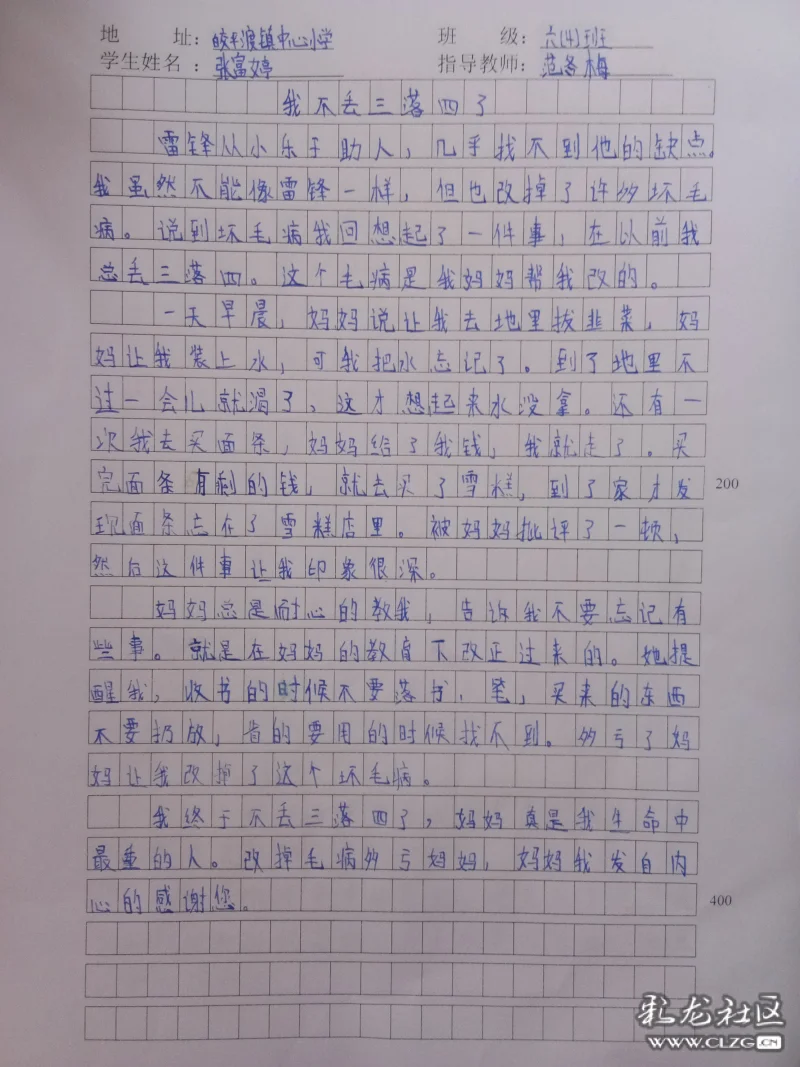 地 址：皎平渡镇中心小学 班 级：六(4)班
学生姓名：张富婷 指导教师：范冬梅
我不丢三落四了
雷锋从小乐于助人，几乎找不到他的缺点。
我虽然不能像雷锋一样，但也改掉了许多坏毛
病。说到坏毛病我回想起了一件事，在以前我
总丢三落四。这个毛病是我妈妈帮我改的。
一天早晨，妈妈说让我去地里拔韭菜，妈
妈让我装上水，可我把水忘记了。到了地里不
过一会儿就渴了，这才想起来水没拿。还有一
次我去买面条，妈妈给了我钱，我就走了。买
完面条有剩的钱，就去买了雪糕，到了家才发 200
现面条忘在了雪糕店里。被妈妈批评了一顿，
然后这件事让我印象很深。
妈妈总是耐心的教我，告诉我不要忘记有
些事。就是在妈妈的教育下改正过来的。她提
醒我，收书的时候不要落书、笔，买来的东西
不要扔放，省的要用的时候找不到。多亏了妈
妈让我改掉了这个坏毛病。
我终于不丢三落四了，妈妈真是我生命中
最重的人。改掉毛病多亏妈妈，妈妈我发自内
心的感谢您。 400
彩龙社区
WWW.CLZG.CN